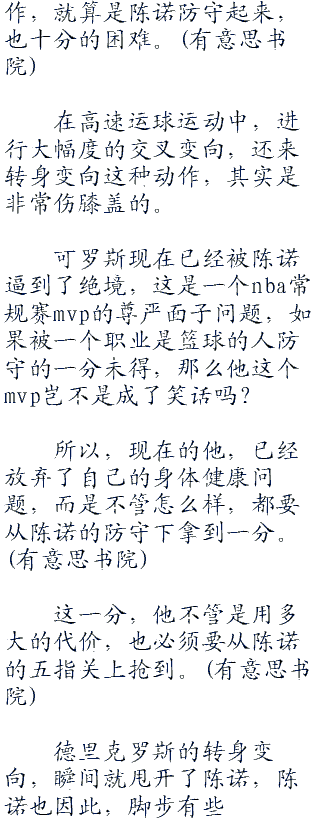 作，就算是陈诺防守起来，
也十分的困难。(有意思书
院)
在高速运球运动中，进
行大幅度的交叉变向，还来
转身变向这种动作，其实是
非常伤膝盖的。
可罗斯现在已经被陈诺
逼到了绝境，这是一个nba常
规赛mvp的尊严面子问题，如
果被一个职业是篮球的人防
守的一分未得，那么他这个
mvp岂不是成了笑话吗？
所以，现在的他，已经
放弃了自己的身体健康问
题，而是不管怎么样，都要
从陈诺的防守下拿到一分。
(有意思书院)
这一分，他不管是用多
大的代价，也必须要从陈诺
的五指关上抢到。(有意思书
院)
德里克罗斯的转身变
向，瞬间就甩开了陈诺，陈
诺也因此，脚步有些